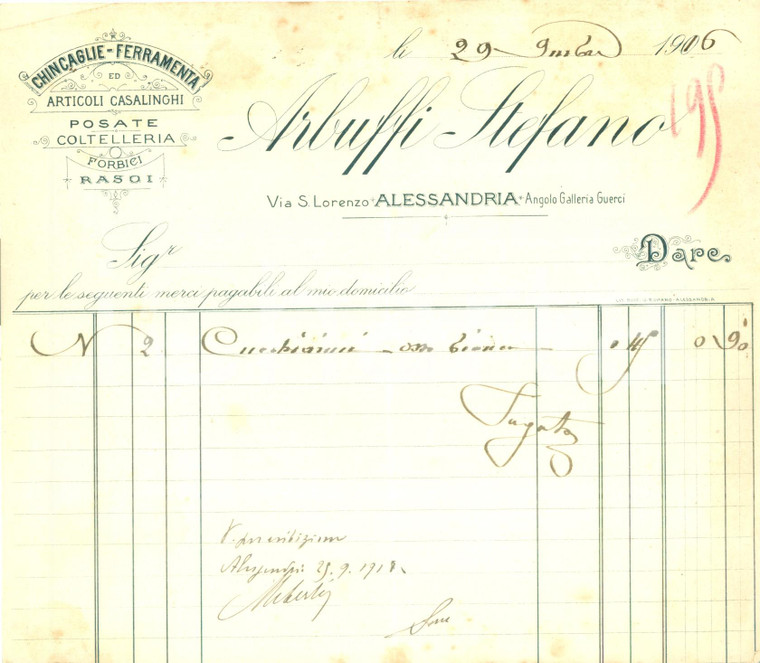 CHINCAGLIE - FERRAMENTA
ED
ARTICOLI CASALINGHI
POSATE
COLTELLERIA
FORBICI
RASOI
li 29 9mbre 1906
Arbuffi Stefano
195
Via S. Lorenzo ALESSANDRIA Angolo Galleria Guerci
Sigr
Dare
per le seguenti merci pagabili al mio domicilio
N 2 Cucchiaini osso 0 45 0 90
Pagato
V.
29.9.191